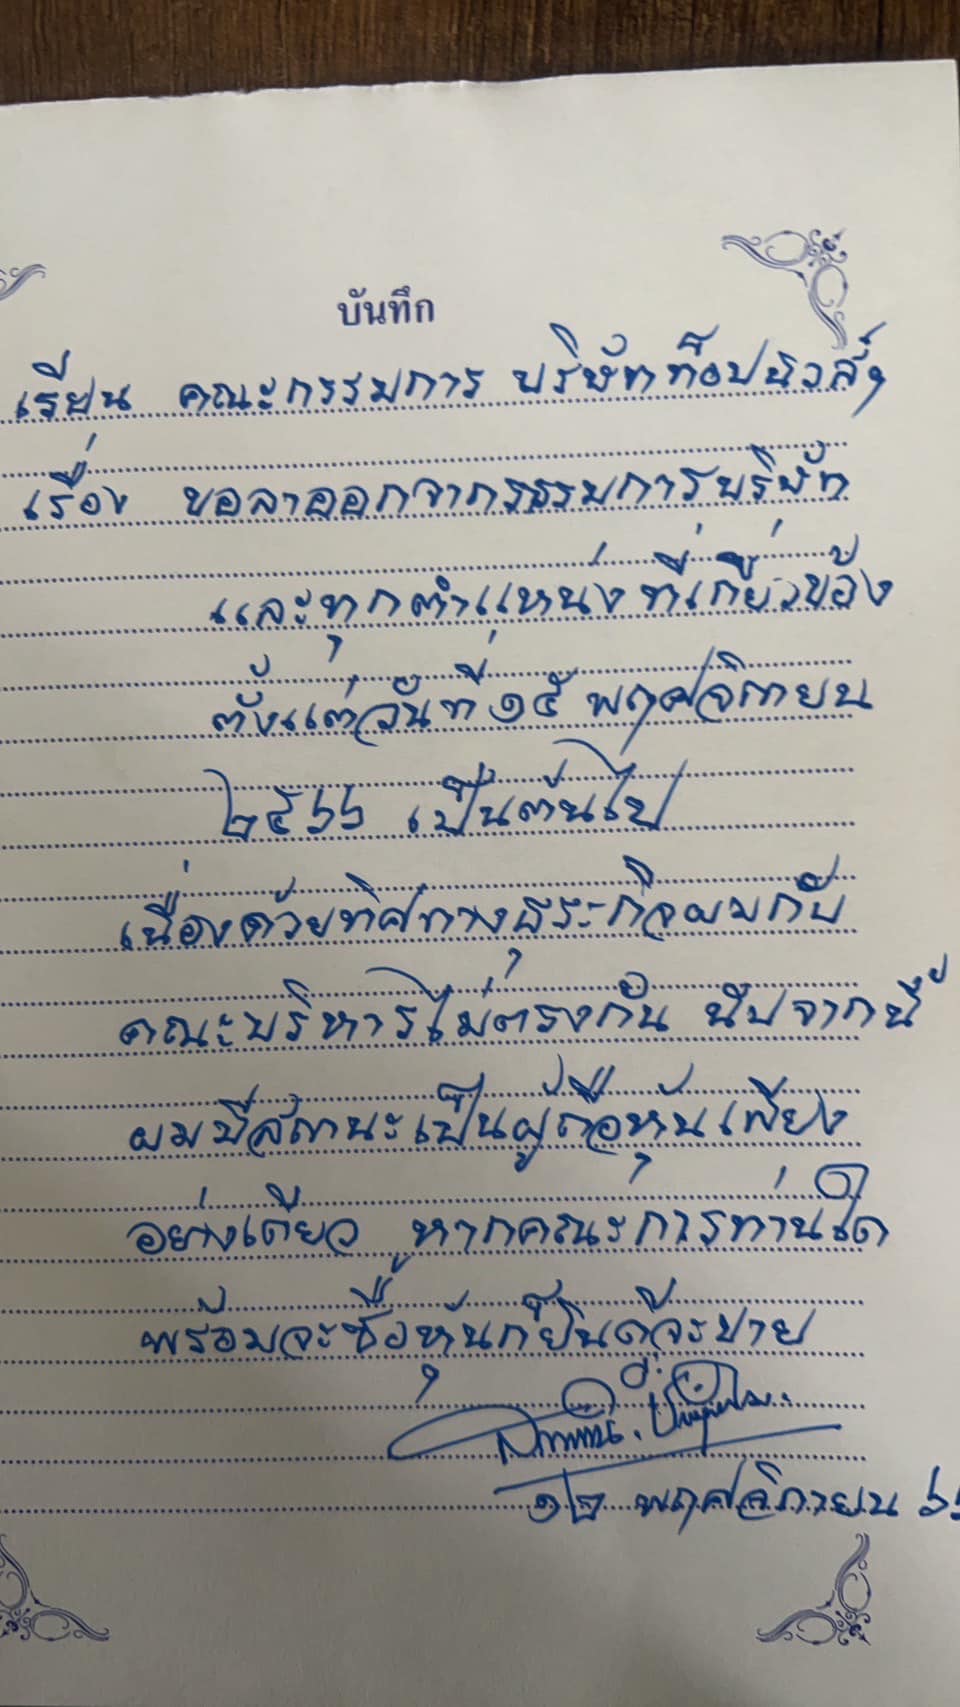 บันทึก
เรียน คณะกรรมการ บริษัทท็อปนิวส์ฯ
เรื่อง ขอลาออกจากกรรมการบริษัท
และทุกตำแหน่ง ที่เกี่ยวข้อง
ตั้งแต่วันที่ ๑๕ พฤศจิกายน
๒๕๖๖ เป็นต้นไป
เนื่องด้วยทิศทางธุระกิจผมกับ
คณะบริหารไม่ตรงกัน นับจากนี้
ผมมีสถานะเป็นผู้ถือหุ้นเพียง
อย่างเดียว หากคณะการท่านใด
พร้อมจะซื้อหุ้นก็ยินดีจะขาย
๑๒ พฤศจิกายน ๖๖